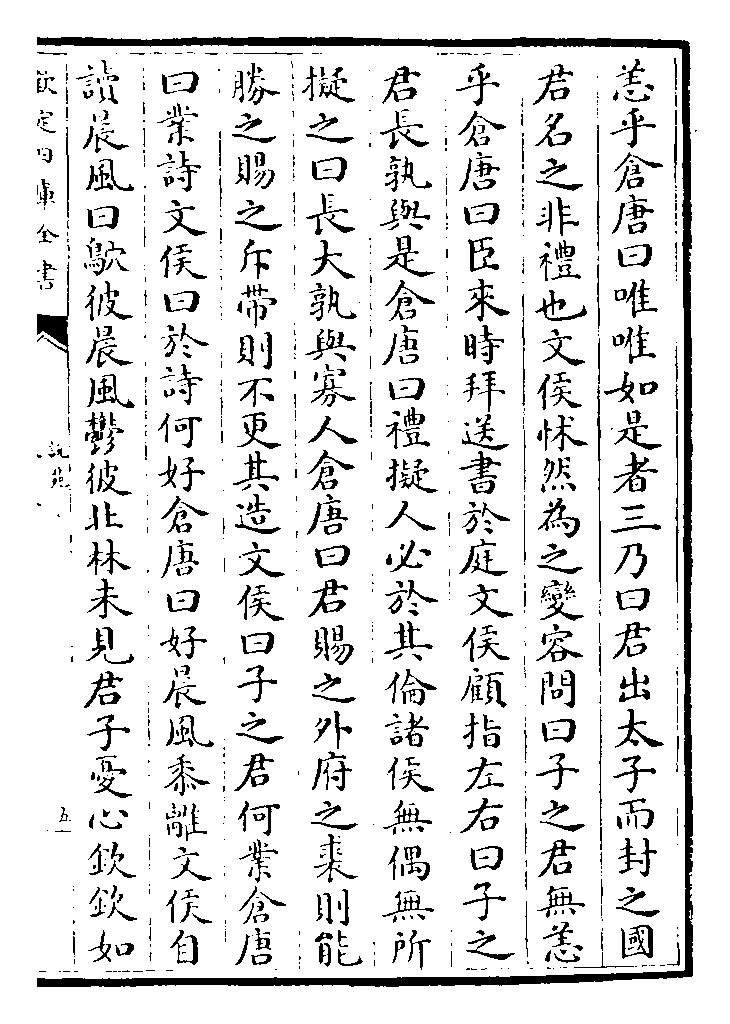 恙乎倉唐曰唯唯如是者三乃曰君出太子而封之國
君名之非禮也文侯怵然為之變容問曰子之君無恙
乎倉唐曰臣來時拜送書於庭文侯顧指左右曰子之
君長孰與是倉唐曰禮擬人必於其倫諸侯無偶無所
擬之曰長大孰與寡人倉唐曰君賜之外府之裘則能
勝之賜之斥帶則不更其造文侯曰子之君何業倉唐
曰業詩文侯曰於詩何好倉唐曰好晨風黍離文侯自
讀晨風曰鴥彼晨風鬱彼北林未見君子憂心欽欽如
欽定四庫全書
說苑
五